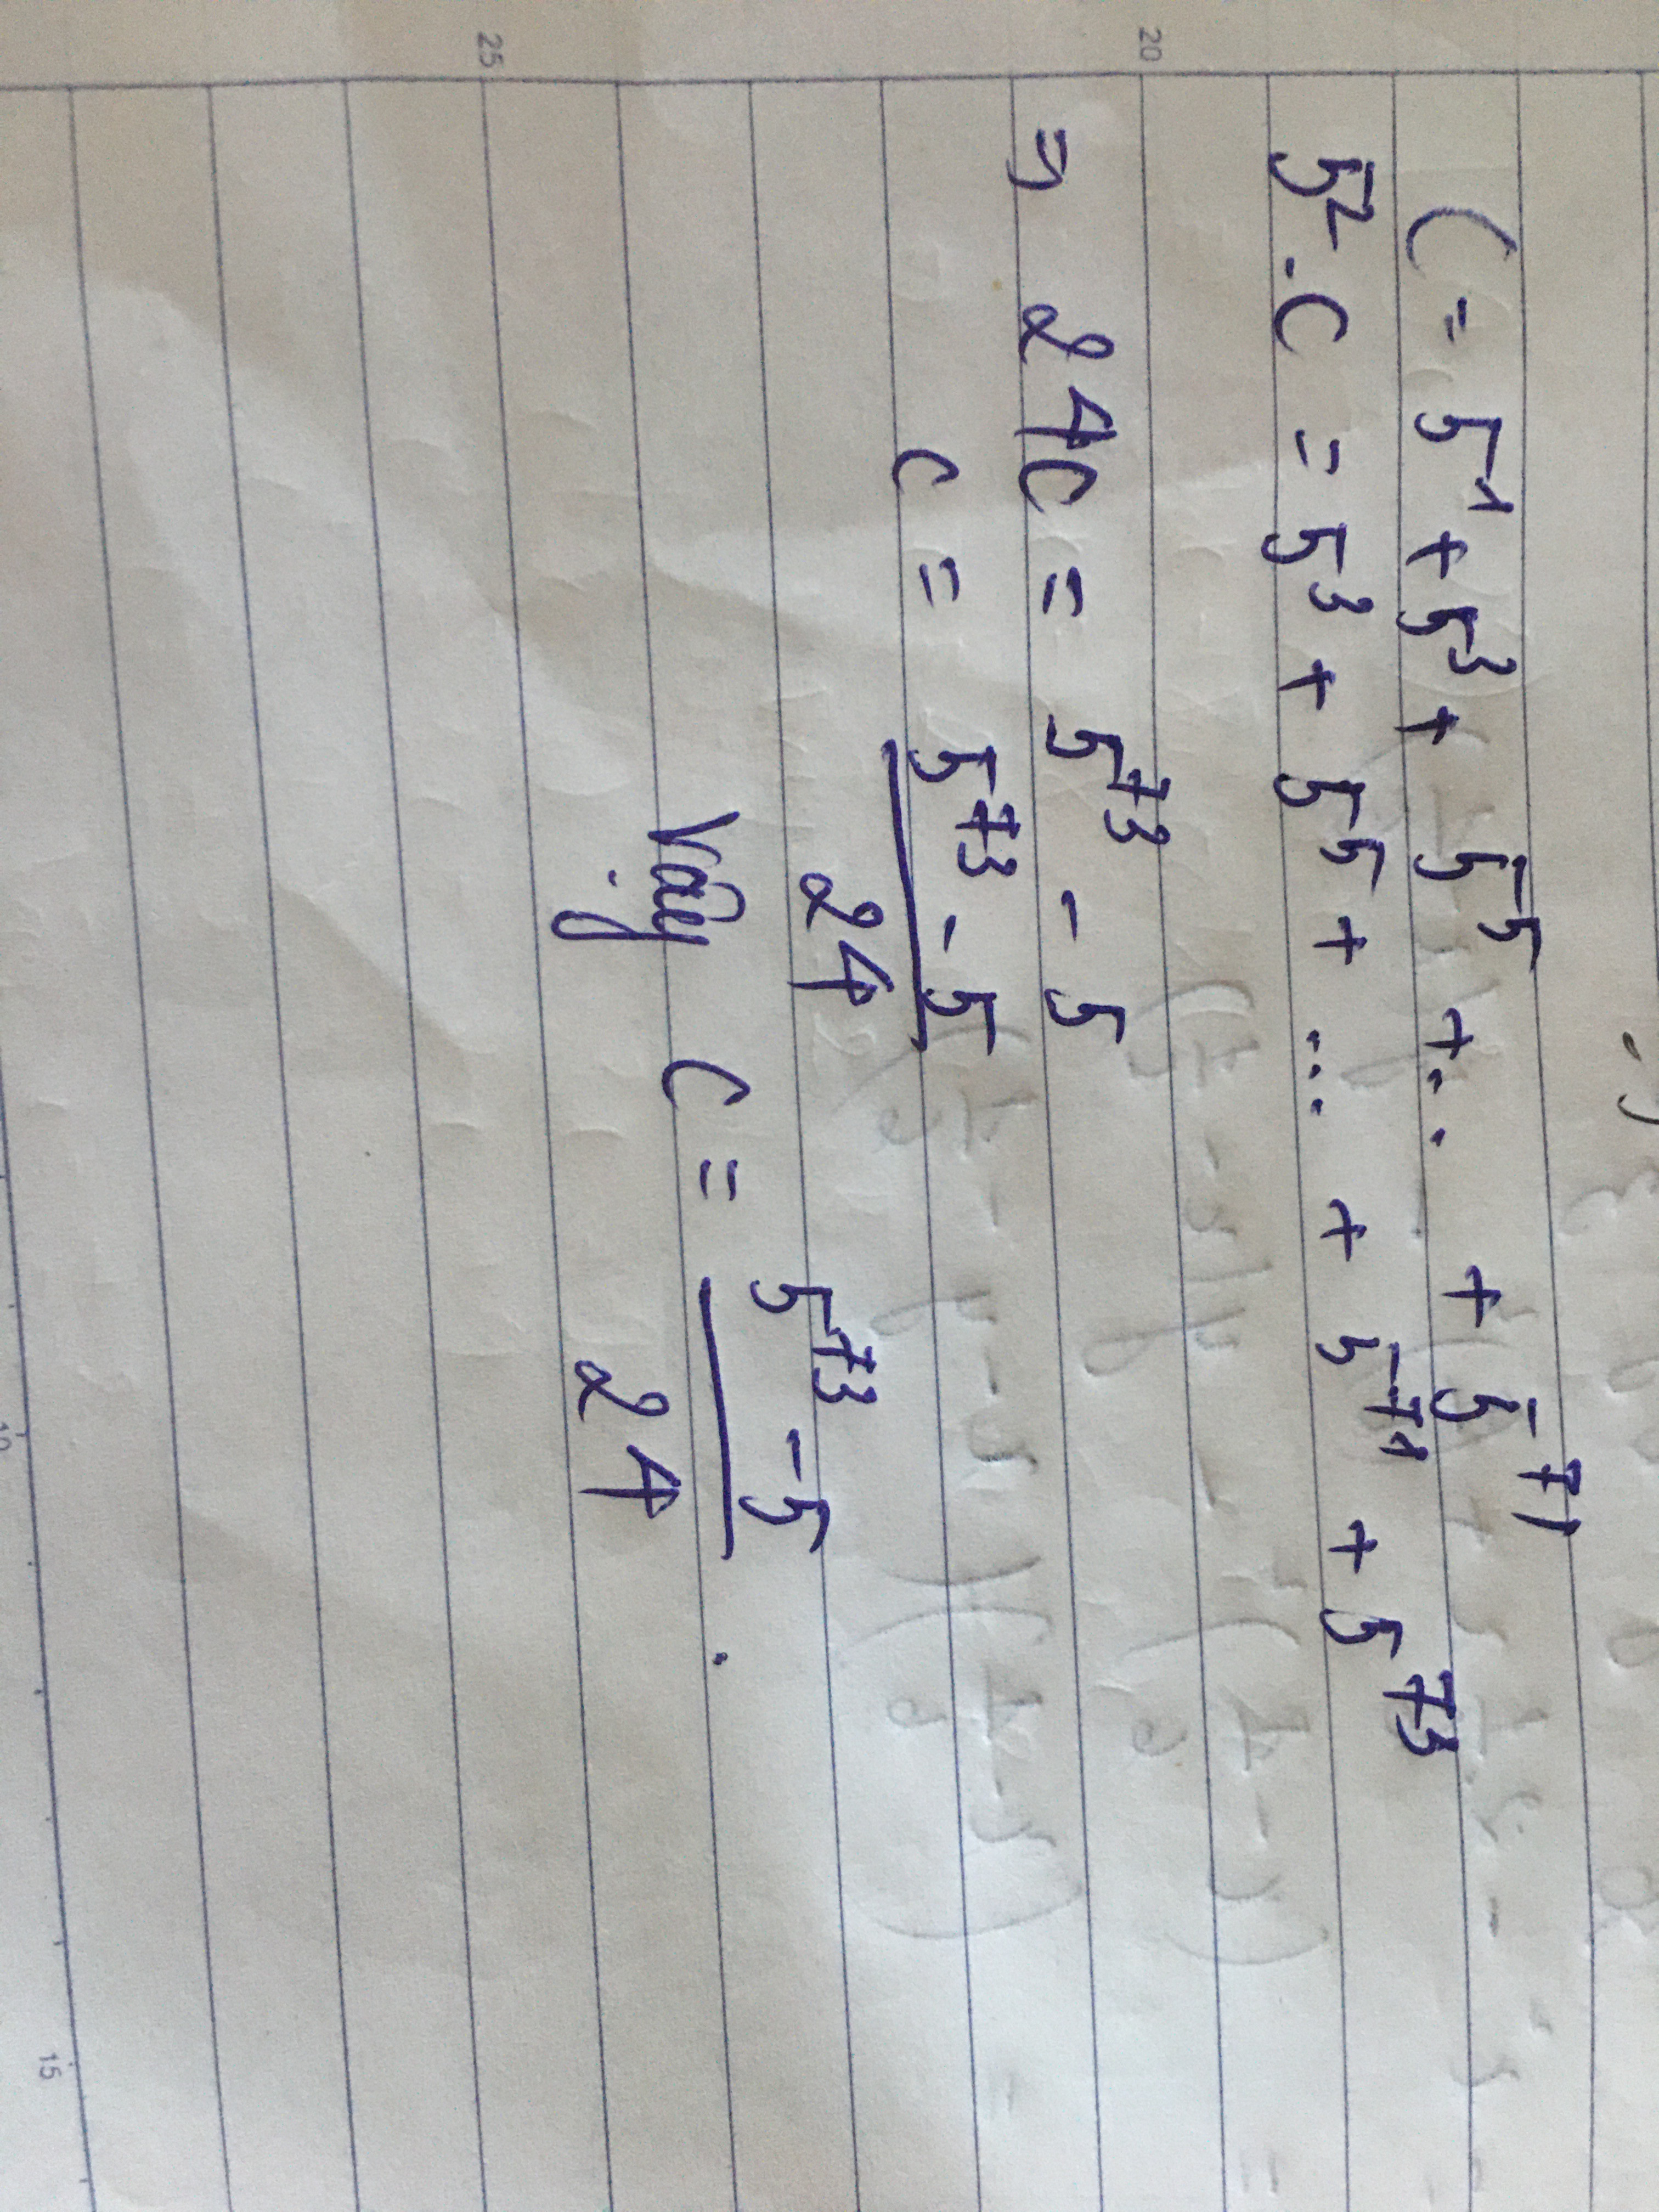 C = 5¹ + 5³ + 5⁵ + ... + 5⁷¹
5².C = 5³ + 5⁵ + ... + 5⁷¹ + 5⁷³
=> 24C = 5⁷³ - 5
C = (5⁷³ - 5)/24
Vậy C = (5⁷³ - 5)/24 .
20
25
10
15